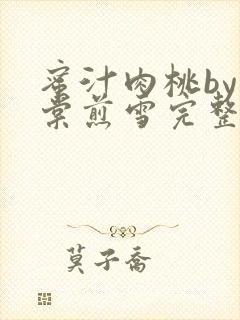 蜜汁肉桃by
棠煎雪完整
莫子乔